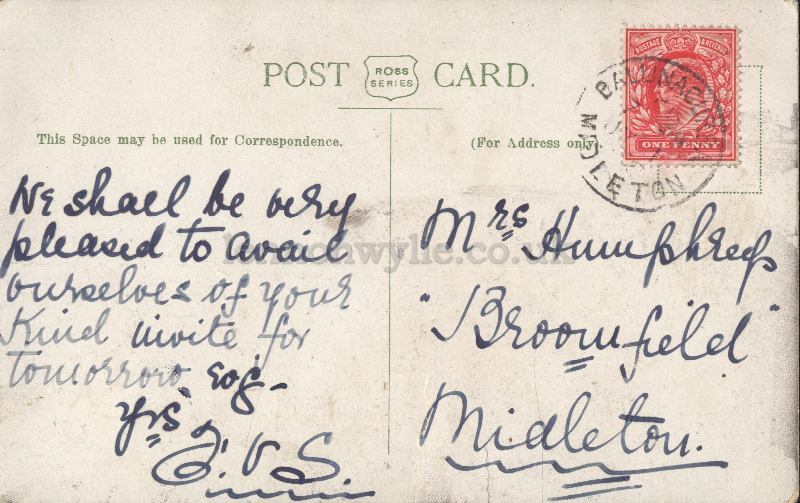 POST CARD.
ROSS
SERIES
POSTAGE & REVENUE
ONE PENNY
MIDLETON
This Space may be used for Correspondence.
(For Address only
We shall be very
pleased to avail
ourselves of your
kind invite for
tomorrow evg_
Yrs
.V.S.
Mrs Humphreys
"Broomfield"
Midleton.
wylie.co.uk